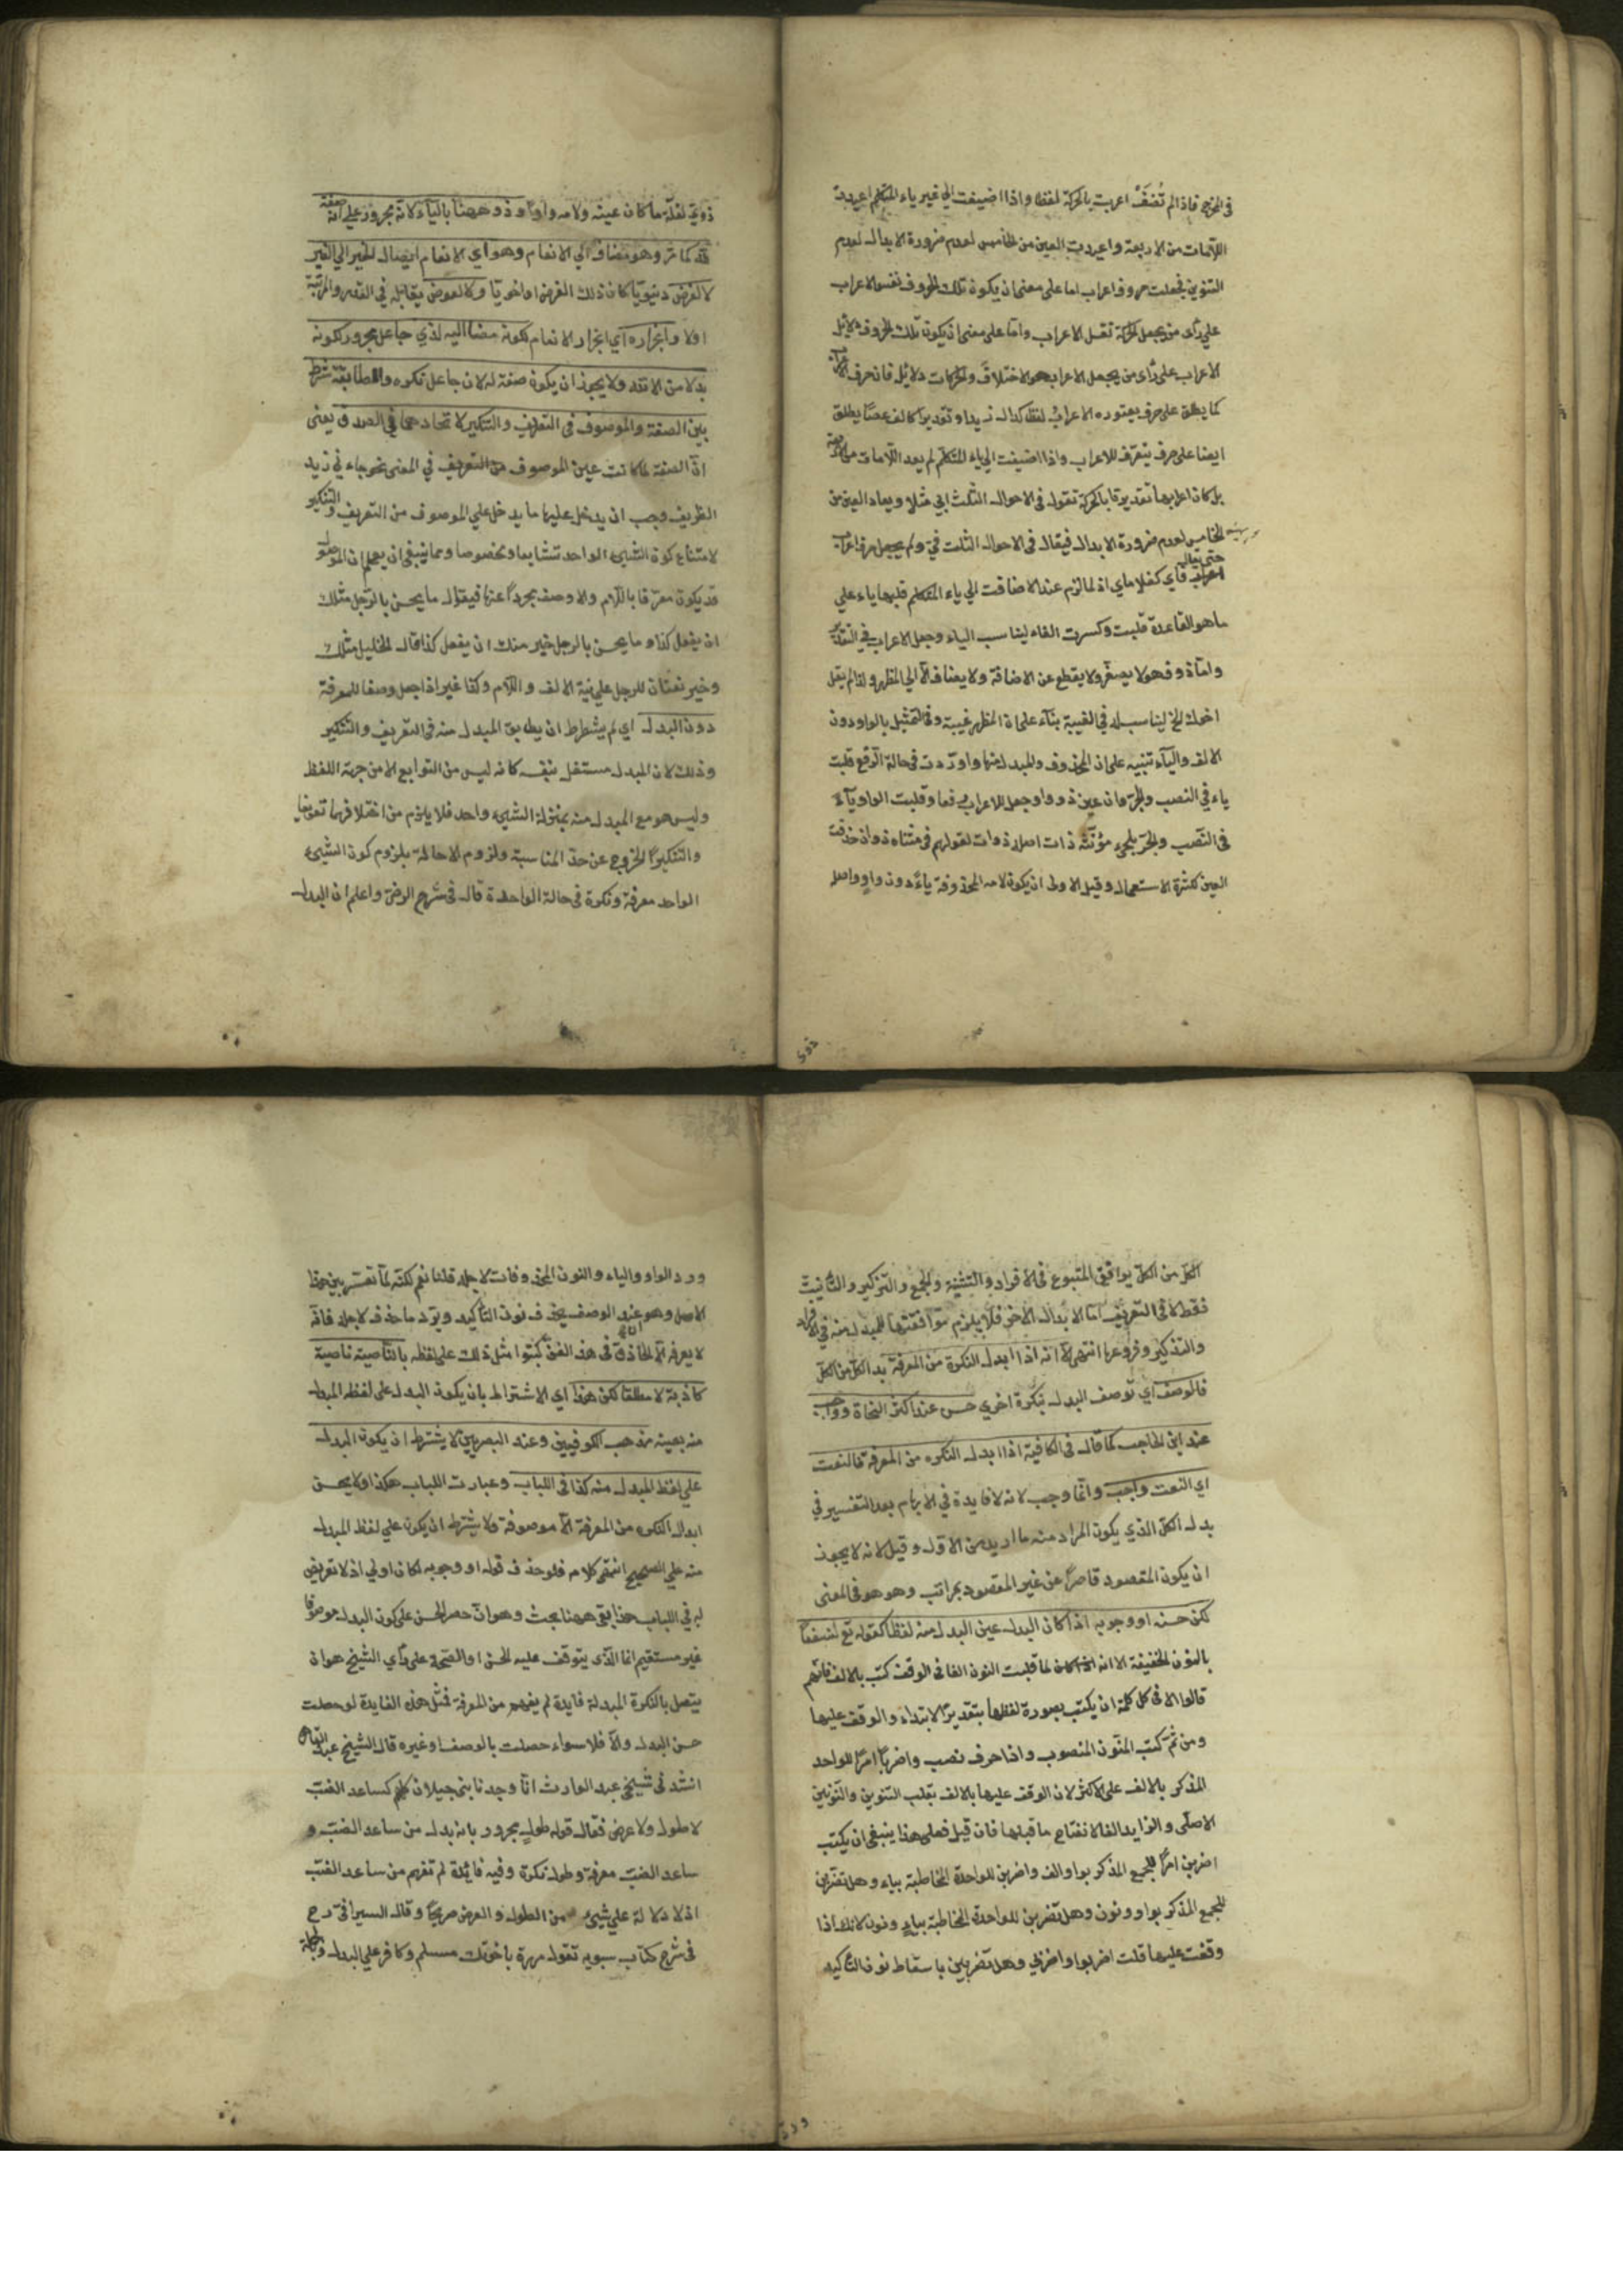 في المخرج فاذا لم تُضَفْ اعربت بالحركة لفظا واذا اضيفت الي غير ياء المتكلم اعيدت
اللامات من الاربعة واعيدت العين من الخامس لعدم ضرورة الابدال لعدم
التنوين فجعلت حروف اعراب اما على معنى ان يكون تلك الحروف نفس الاعراب
على رأى من يجعل الحركة نفس الاعراب واما على معنى ان يكون تلك الحروف دلائل
الاعراب على رأى من يجعل الاعراب هو الاختلاف والحركات دلائل فان حرف الاعراب
كما يطلق على حرف يعتوره الاعراب لفظا كدال زيد او تقديرا كالف عصا يطلق
ايضا على حرف يتعرف للاعراب واذا اضيفت الي ياء المتكلم لم يعد اللامات من الاربعة
بل كان اعرابها تقديريا بالحركة تقول في الاحوال الثلث ابي مثلا ويعاد العين من
الخامس لعدم ضرورة الابدال فيقال في الاحوال الثلث فيّ ولم يجعل حرف اعراب
حتى يقال
فاي كغلاماي اذ لما لزم عند الاضافة الي ياء المتكلم قلبها ياء على
ما هو القاعدة قلبت وكسرت الفاء ليناسب الياء وجعل الاعراب في التقدير
واما ذو فهو لا يصغر ولا يقطع عن الاضافة ولا يضاف الا الي المظهر ولذا لم يقل
اخوك الخ ليناسب له في الغيبة بناء على ان المظهر غيبة وفي التمثيل بالواو دون
الالف والياء تنبيه على ان المحذوف والمبدل منها واو ردت في حالة الرفع قلبت
ياء في النصب والجر فان عين ذو واو جعل للاعراب رفعا وقلبت الواو ياء
في النصب والجر بلمجىء مؤنثه ذات اصله ذوات لقولهم في مثناه ذواتا حذفت
العين لكثرة الاستعمال وقيل الاولى ان يكون لامه المحذوفة ياءً دون واو واصل
ذوو
ذوي لقلة ما كان عينه ولامه واوا وذو ههنا بالياء لانه مجرور على انه صفة
لله كما مر وهو مضاف الي الانعام وهو اي الانعام ايصال الخير الي الغير
لا لغرض دنيويا كان ذلك الغرض او اخرويا ولا لعوض يقابله في القدر والمرتبة
اولا وانجراره اي انجرار الانعام لكونه مضاف اليه لذي جاعل مجرور لكونه
بدلا من الله ولا يجوز ان يكون صفة له لان جاعل نكره والمطابقة شرط
بين الصفة والموصوف في التعريف والتنكير لاتحادهما في الصدق يعني
انّ الصفة لما كانت عين الموصوف من التعريف في المعنى نحو جاءني زيد
الظريف وجب ان يدخل عليها ما يدخل على الموصوف من التعريف والتنكير
لامتناع كون الشيء الواحد شايعا ومخصوصا ومما ينبغي ان يعلم ان الموصوف
قد يكون معرفا باللام والاوصف مجردا عنها فيقول ما يحسن بالرجل مثلك
ان يفعل كذا وما يحسن بالرجل خير منك ان يفعل كذا قال الخليل مثلك
وخير نعتان للرجل على نية الالف واللام وكذا غير اذا جعل وصفا للمعرفة
دون البدل اي لم يشترط ان يطابق المبدل منه في التعريف والتنكير
وذلك لان المبدل مستقل بنفسه كانه ليس من التوابع الا من جهة اللفظ
وليس هو مع المبدل منه بمنزلة الشيء واحد فلا يلزم من اختلافهما تعريفا
والتنكيرا الخروج عن حد المناسبة ولزوم الاحالة يلزوم كون الشيء
الواحد معرفة ونكرة في حالة الواحدة قال في شرح الرضي واعلم ان البدل
الكل من الكل يوافق المتبوع في الافراد والتثنية والجمع والتذكير والتانيث
فقط لا في التعريف اما الابدال الاخر فلا يلزم موافقتها للمبدل منه في الافراد
والتذكير وفروعها انتهى الا انه اذا ابدل النكرة من المعرفة بدل الكل من الكل
فالوصف اي توصف البدل بنكرة اخري حسن عند اكثر النحاة وواجب
عند ابن الحاجب كما قال في الكافية اذا ابدل النكره من المعرفة فالنعت
اي النعت واجب وانما وجب لانه لا فايدة في الابهام بعد التفسير في
بدل الكل الذي يكون المراد منه ما اريد من الاول وقيل لانه لا يجوز
ان يكون المقصود قاصرا عن غير المقصود بمراتب وهو هو في المعنى
لكن حسنه او وجوبه اذا كان البدل عين البدل منه لفظا كقوله تع لنسفعا
بالنون الخفيفة الا انه لما قلبت النون الفا في الوقف كتب بالالف فانهم
قالوا الا في كل كلمة ان يكتب بصورة لفظها بتقدير الابتداء والوقف عليها
ومن ثم كتب المنون المنصوب واذا حرف نصب واضربا امرا للواحد
المذكر بالالف على الاكثر لان الوقف عليها بالالف بقلب التنوين والنونين
الاصلى والزايد الفا لانفتاح ما قبلها فان قيل فعلى هذا ينبغي ان يكتب
اضربن امرا للجمع المذكر بواو والف واضربن للواحدة المخاطبة بياء وهل تضربن
للجمع المذكر بواو ونون وهل تضربن للواحدة المخاطبة بياء ونون لانك اذا
وقفت عليها قلت اضربوا واضربي وهل تضربين باسقاط نون التأكيد
ورد
ورد الواو والياء والنون المحذوفات لاجله قلنا نعم لكنه لما تعسر بين هذا
الاصل وهو عند الوصف يحذف نون التأكيد ويرد ما حذف لاجله فانه
لا يعرفه الا الحاذق في هذا الفن كتبوا مثل ذلك على لفظه بالناصية ناصية
كاذبة لا مطلقا لكن هذا اي الاشتراط بان يكون البدل على لفظ المبدل
منه بعينه مذهب الكوفيين وعند البصريين لا يشترط ان يكون البدل
على لفظ المبدل منه كذا في اللباب وعبارت اللباب هكذا ولا يحسن
ابدال النكره من المعرفة الا موصوفة ولا يشترط ان يكون على لفظ المبدل
منه على الصحيح انتهى كلامه فلو حذف قوله او وجوبه لكان اولي اذ لا تعريض
له في اللباب هذا بقى ههنا بحث وهو ان حصر الحسن على كون البدل موصوفا
غير مستقيم انما الذي يتوقف عليه الحسن او الصحة على رأي الشيخ هو ان
يتصل بالنكرة المبدلة فايدة لم يفهم من المعرفة فمثل هذه الفايدة لو حصلت
حسن البدل والا فلا سواء حصلت بالوصف او غيره قال الشيخ عبد القاهر
انشدني شيخي عبد الوارث انا وجدنا بني جيلان كلهم كساعد الضب
لا طول ولا عرض فقال قوله طول مجرور بانه بدل من ساعد الضب و
ساعد الضب معرفة وطول نكرة وفيه فائدة لم تفهم من ساعد الضب
اذ لا دلالة على شيء من الطول والعرض صريحا وقال السيرافي رح
في شرح كتاب سبويه تقول مررة باخويك مسلم وكافر على البدل